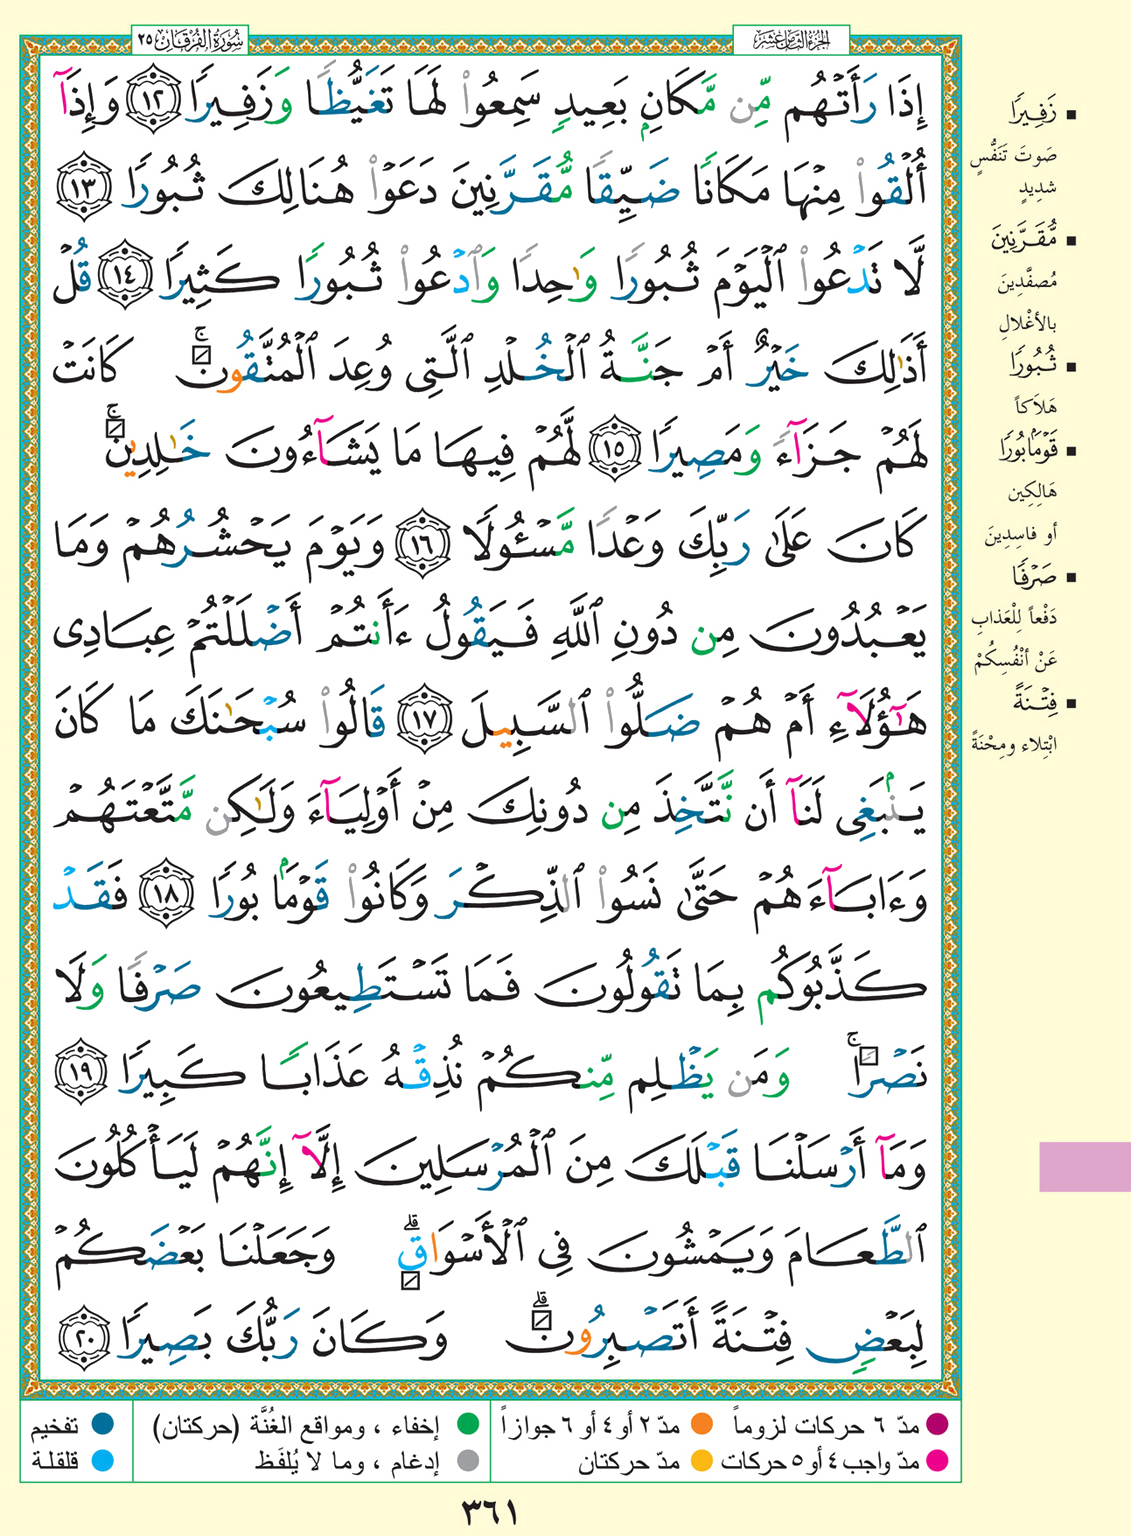 سُورَةُ الفُرْقَان ٢٥
الجزء الثامن عشر
إِذَا رَأَتْهُم مِّن مَّكَانٍۭ بَعِيدٍ سَمِعُوا۟ لَهَا تَغَيُّظًا وَزَفِيرًا ١٢ وَإِذَآ
أُلْقُوا۟ مِنْهَا مَكَانًا ضَيِّقًا مُّقَرَّنِينَ دَعَوْا۟ هُنَالِكَ ثُبُورًا ١٣
لَّا تَدْعُوا۟ ٱلْيَوْمَ ثُبُورًا وَٰحِدًا وَٱدْعُوا۟ ثُبُورًا كَثِيرًا ١٤ قُلْ
أَذَٰلِكَ خَيْرٌ أَمْ جَنَّةُ ٱلْخُلْدِ ٱلَّتِى وُعِدَ ٱلْمُتَّقُونَ ۚ كَانَتْ
لَهُمْ جَزَآءً وَمَصِيرًا ١٥ لَّهُمْ فِيهَا مَا يَشَآءُونَ خَٰلِدِينَ ۚ
كَانَ عَلَىٰ رَبِّكَ وَعْدًا مَّسْـُٔولًا ١٦ وَيَوْمَ يَحْشُرُهُمْ وَمَا
يَعْبُدُونَ مِن دُونِ ٱللَّهِ فَيَقُولُ ءَأَنتُمْ أَضْلَلْتُمْ عِبَادِى
هَٰٓؤُلَآءِ أَمْ هُمْ ضَلُّوا۟ ٱلسَّبِيلَ ١٧ قَالُوا۟ سُبْحَٰنَكَ مَا كَانَ
يَنۢبَغِى لَنَآ أَن نَّتَّخِذَ مِن دُونِكَ مِنْ أَوْلِيَآءَ وَلَٰكِن مَّتَّعْتَهُمْ
وَءَابَآءَهُمْ حَتَّىٰ نَسُوا۟ ٱلذِّكْرَ وَكَانُوا۟ قَوْمًۢا بُورًا ١٨ فَقَدْ
كَذَّبُوكُم بِمَا تَقُولُونَ فَمَا تَسْتَطِيعُونَ صَرْفًا وَلَا
نَصْرًا ۚ وَمَن يَظْلِم مِّنكُمْ نُذِقْهُ عَذَابًا كَبِيرًا ١٩
وَمَآ أَرْسَلْنَا قَبْلَكَ مِنَ ٱلْمُرْسَلِينَ إِلَّآ إِنَّهُمْ لَيَأْكُلُونَ
ٱلطَّعَامَ وَيَمْشُونَ فِى ٱلْأَسْوَاقِ ۗ وَجَعَلْنَا بَعْضَكُمْ
لِبَعْضٍ فِتْنَةً أَتَصْبِرُونَ ۗ وَكَانَ رَبُّكَ بَصِيرًا ٢٠
▪ زَفِيرًا
صَوتَ تَنَفُّسٍ
شدِيدٍ
▪ مُّقَرَّنِينَ
مُصفَّدِينَ
بالأغْلالِ
▪ ثُبُورًا
هَلاَكاً
▪ قَوْمًۢا بُورًا
هَالِكِين
أو فاسِدِينَ
▪ صَرْفًا
دَفْعاً لِلْعَذابِ
عَنْ أنْفُسِكُمْ
▪ فِتْنَةً
ابْتِلاء ومِحْنَةً
مدّ ٦ حركات لزوماً مدّ ٢ أو ٤ أو ٦ جوازاً إخفاء ، ومواقع الغُنَّة (حركتان) تفخيم
مدّ واجب ٤ أو ٥ حركات مدّ حركتان إدغام ، وما لا يُلفَظ قلقلة
٣٦١